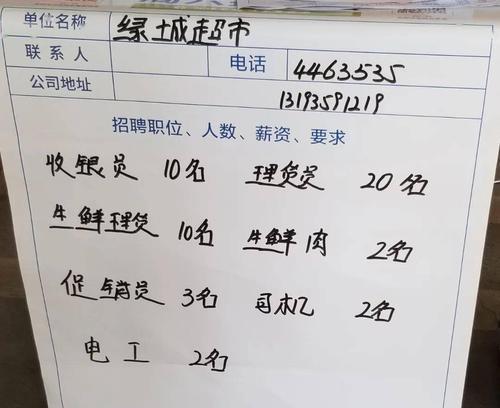 单位名称 绿城超市
联系人 电话 4463535
公司地址 13193591219
招聘职位、人数、薪资、要求
收银员 10名 理货员 20名
生鲜理货 10名 生鲜肉 2名
促销员 3名 司机 2名
电工 2名